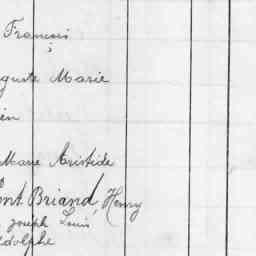 François
;
guste Marie
en
Marie Aristide
ont Briand, Henry
Joseph Louis
dolphe